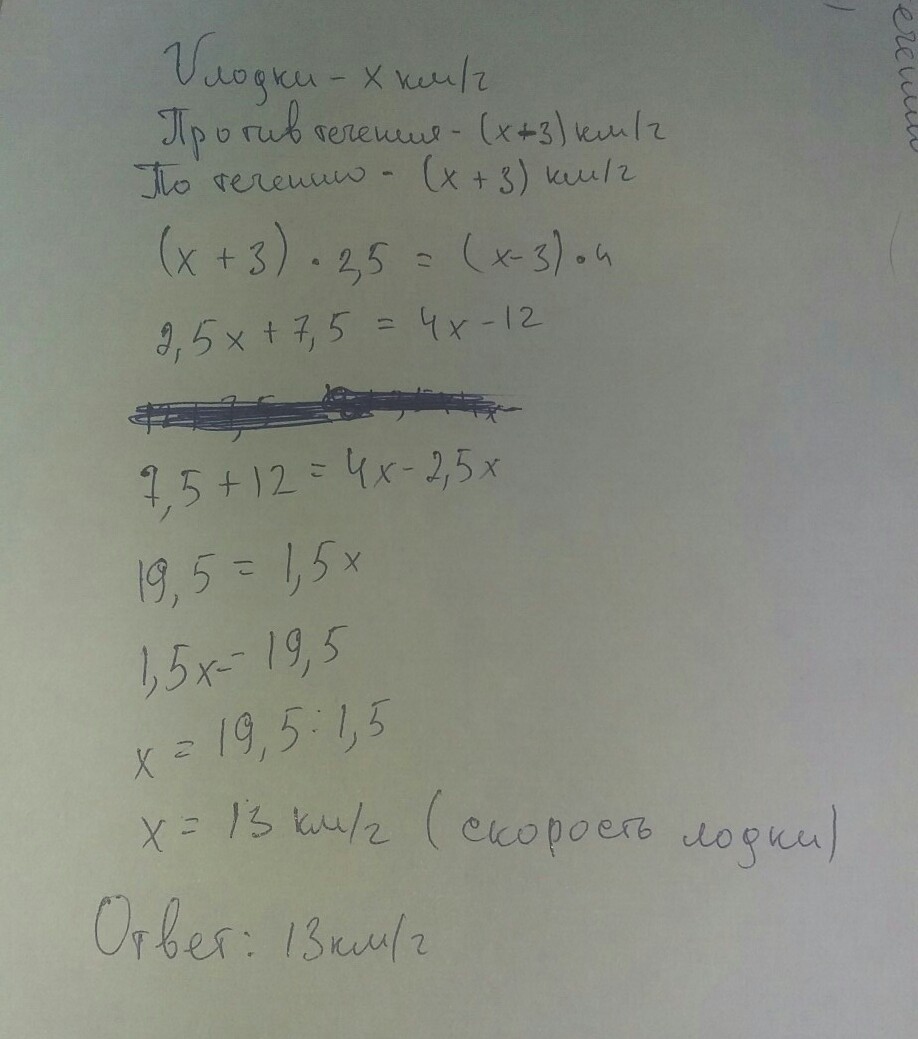 Vлодки - х км/г
Против течения - (х+3) км/г
По течению - (х + 3) км/г
(х + 3) • 2,5 = (х-3) • 4
2,5х + 7,5 = 4х - 12
7,5 + 12 = 4х - 2,5х
19,5 = 1,5х
1,5х = 19,5
х = 19,5 : 1,5
х = 13 км/г (скорость лодки)
Ответ: 13км/г
ечении
)